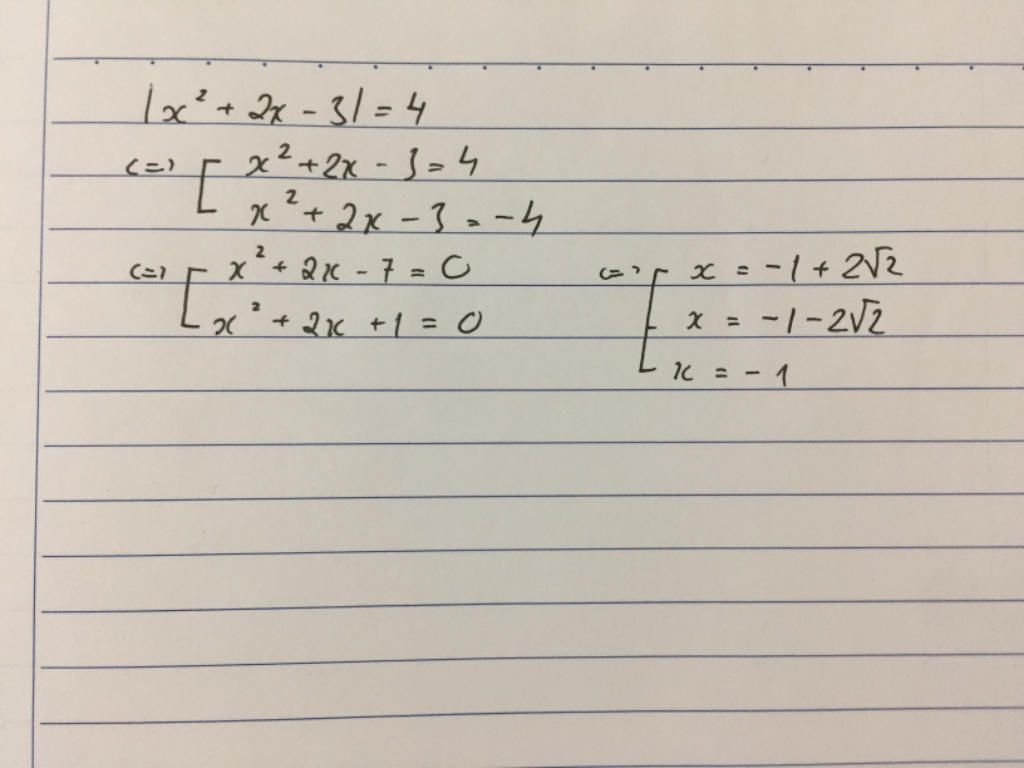 |x² + 2x - 3| = 4
<=> [ x² + 2x - 3 = 4
x² + 2x - 3 = -4
<=> [ x² + 2x - 7 = 0
x² + 2x + 1 = 0
<=> [ x = -1 + 2√2
x = -1 - 2√2
x = -1